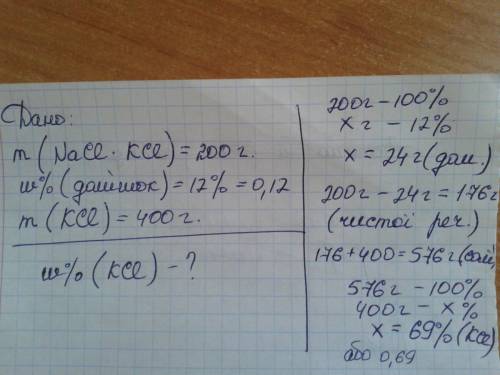 Дано:
m (NaCl · KCl) = 200 г.
w% (домішок) = 12% = 0,12
m (KCl) = 400 г.
w% (KCl) - ?
200 г - 100%
x г - 12%
x = 24 г (дом.)
200 г - 24 г = 176 г
(чистої реч.)
176 + 400 = 576 г
576 г - 100%
400 г - x %
x = 69% (KCl)
або 0,69